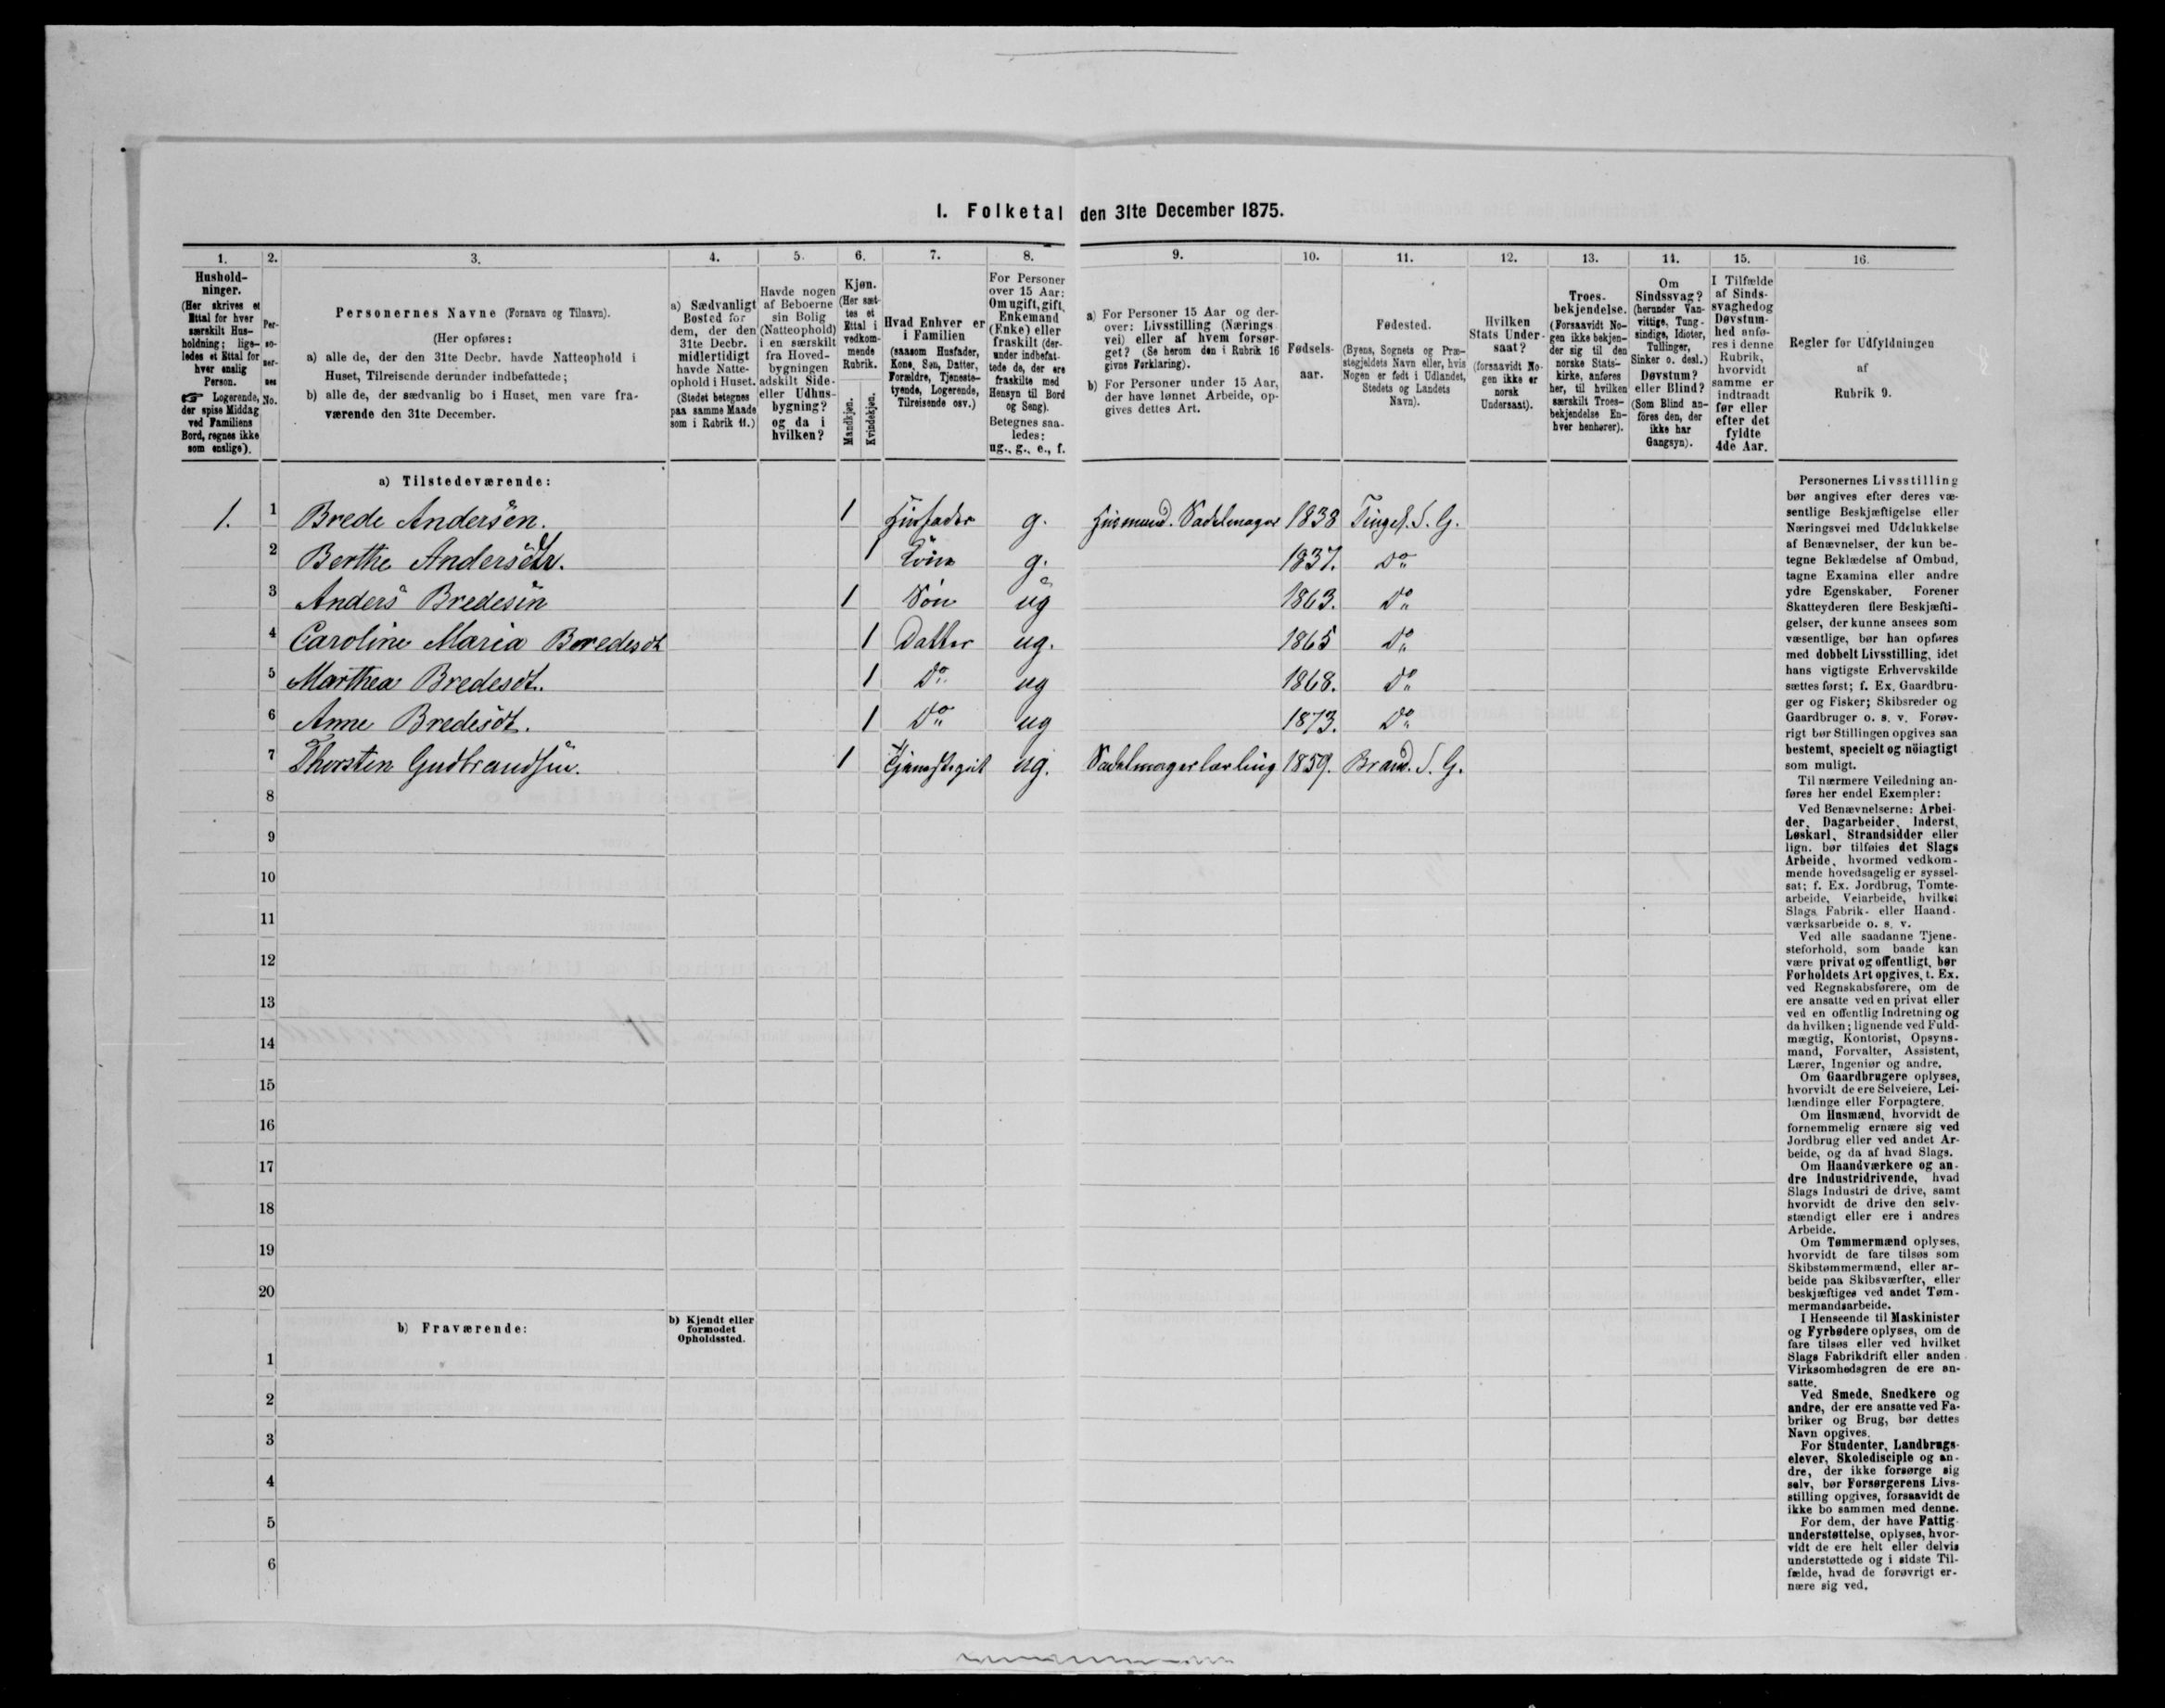 I. Folketal den 31te December 1875.
1.
Hushold-
ninger.
(Her skrives et
Ettal for hver
særskilt Hus-
holdning; lige-
ledes et Ettal for
hver enslig
Person.
☞ Logerende,
der spise Middag
ved Familiens
Bord, regnes ikke
som enslige).
2.
Per-
so-
ner-
nes
No.
3.
Personernes Navne (Fornavn og Tilnavn).
(Her opføres:
a) alle de, der den 31te Decbr. havde Natteophold i
Huset, Tilreisende derunder indbefattede;
b) alle de, der sædvanlig bo i Huset, men vare fra-
værende den 31te December.
4.
a) Sædvanligt
Bosted for
dem, der den
31te Decbr.
midlertidigt
havde Natte-
ophold i Huset.
(Stedet betegnes
paa samme Maade
som i Rubrik 11.)
5.
Havde nogen
af Beboerne
sin Bolig
(Natteophold)
i en særskilt
fra Hoved-
bygningen
adskilt Side-
eller Udhus-
bygning?
og da i
hvilken?
6.
Kjøn.
(Her sæt-
tes et
Ettal i
vedkom-
mende
Rubrik.
Mandkjøn.
Kvindekjøn.
7.
Hvad Enhver er
i Familien
(saasom Husfader,
Kone, Søn, Datter,
Forældre, Tjeneste-
tyende, Logerende,
Tilreisende osv.)
8.
For Personer
over 15 Aar:
Om ugift, gift,
Enkemand
(Enke) eller
fraskilt (der-
under indbefat-
tede de, der ere
fraskilte med
Hensyn til Bord
og Seng).
Betegnes saa-
ledes:
ug., g., e., f.
9.
a) For Personer 15 Aar og der-
over: Livsstilling (Nærings-
vei) eller af hvem forsør-
get? (Se herom den i Rubrik 16
givne Forklaring).
b) For Personer under 15 Aar,
der have lønnet Arbeide, op-
gives dettes Art.
10.
Fødsels-
aar.
11.
Fødested.
(Byens, Sognets og Præ-
stegjeldets Navn eller, hvis
Nogen er født i Udlandet,
Stedets og Landets
Navn).
12.
Hvilken
Stats Under-
saat?
(forsaavidt No-
gen ikke er
norsk
Undersaat).
13.
Troes-
bekjendelse.
(Forsaavidt No-
gen ikke bekjen-
der sig til den
norske Stats-
kirke, anføres
her, til hvilken
særskilt Troes-
bekjendelse En-
hver henhører).
14.
Om
Sindssvag?
(herunder Van-
vittige, Tung-
sindige, Idioter,
Tullinger,
Sinker o. desl.)
Døvstum?
eller Blind?
(Som Blind an-
føres den, der
ikke har
Gangsyn).
15.
I Tilfælde
af Sinds-
svaghedog
Døvstum-
hed anfø-
res i denne
Rubrik,
hvorvidt
samme er
indtraadt
før eller
efter det
fyldte
4de Aar.
16.
Regler for Udfyldningen
af
Rubrik 9.
a) Tilstedeværende:
1. 1 Brede Andersen. 1 Husfader g. Husmand. Sadelmager 1838 Tingel. S. G.
2 Berthe Andersdtr. 1 Kone g. 1837. Do
3 Anders Bredesen 1 Søn ug 1863. Do
4 Caroline Maria Bredesdt 1 Datter ug. 1865 Do
5 Marthea Bredesdt. 1 Do ug 1868. Do
6 Anne Bredesdt. 1 Do ug 1873. Do
7 Thorsten Gudbrandsen. 1 ug. Sadelmagerlærling 1859. Brand. S. G.
8
9
10
11
12
13
14
15
16
17
18
19
20
b) Fraværende:
b) Kjendt eller
formodet
Opholdssted.
1
2
3
4
5
6
Personernes Livsstilling
bør angives efter deres væ-
sentlige Beskjæftigelse eller
Næringsvei med Udelukkelse
af Benævnelser, der kun be-
tegne Beklædelse af Ombud,
tagne Examina eller andre
ydre Egenskaber. Forener
Skatteyderen flere Beskjæfti-
gelser, der kunne ansees som
væsentlige, bør han opføres
med dobbelt Livsstilling, idet
hans vigtigste Erhvervskilde
sættes først; f. Ex. Gaardbru-
ger og Fisker; Skibsreder og
Gaardbruger o. s. v. Forøv-
rigt bør Stillingen opgives saa
bestemt, specielt og nöiagtigt
som muligt.
Til nærmere Veiledning an-
føres her endel Exempler:
Ved Benævnelserne: Arbei-
der, Dagarbeider, Inderst,
Løskarl, Strandsidder eller
lign. bør tilføies det Slags
Arbeide, hvormed vedkom-
mende hovedsagelig er syssel-
sat; f. Ex. Jordbrug, Tomte-
arbeide, Veiarbeide, hvilket
Slags Fabrik- eller Haand-
værksarbeide o. s. v.
Ved alle saadanne Tjene-
steforhold, som baade kan
være privat og offentligt, bør
Forholdets Art opgives, t. Ex.
ved Regnskabsførere, om de
ere ansatte ved en privat eller
ved en offentlig Indretning og
da hvilken; lignende ved Fuld-
mægtig, Kontorist, Opsyns-
mand, Forvalter, Assistent,
Lærer, Ingeniør og andre.
Om Gaardbrugere oplyses,
hvorvidt de ere Selveiere, Lei-
lændinge eller Forpagtere.
Om Husmænd, hvorvidt de
fornemmelig ernære sig ved
Jordbrug eller ved andet Ar-
beide, og da af hvad Slags.
Om Haandværkere og an-
dre Industridrivende, hvad
Slags Industri de drive, samt
hvorvidt de drive den selv-
stændigt eller ere i andres
Arbeide.
Om Tømmermænd oplyses,
hvorvidt de fare tilsøs som
Skibstømmermænd, eller ar-
beide paa Skibsværfter, eller
beskjæftiges ved andet Tøm-
mermandsarbeide.
I Henseende til Maskinister
og Fyrbødere oplyses, om de
fare tilsøs eller ved hvilket
Slags Fabrikdrift eller anden
Virksomhedsgren de ere an-
satte.
Ved Smede, Snedkere og
andre, der ere ansatte ved Fa-
briker og Brug, bør dettes
Navn opgives.
For Studenter, Landbrugs-
elever, Skoledisciple og an-
dre, der ikke forsørge sig
selv, bør Forsørgerens Livs-
stilling opgives, forsaavidt de
ikke bo sammen med denne.
For dem, der have Fattig-
understøttelse, oplyses, hvor-
vidt de ere helt eller delvis
understøttede og i sidste Til-
fælde, hvad de forøvrigt er-
nære sig ved.